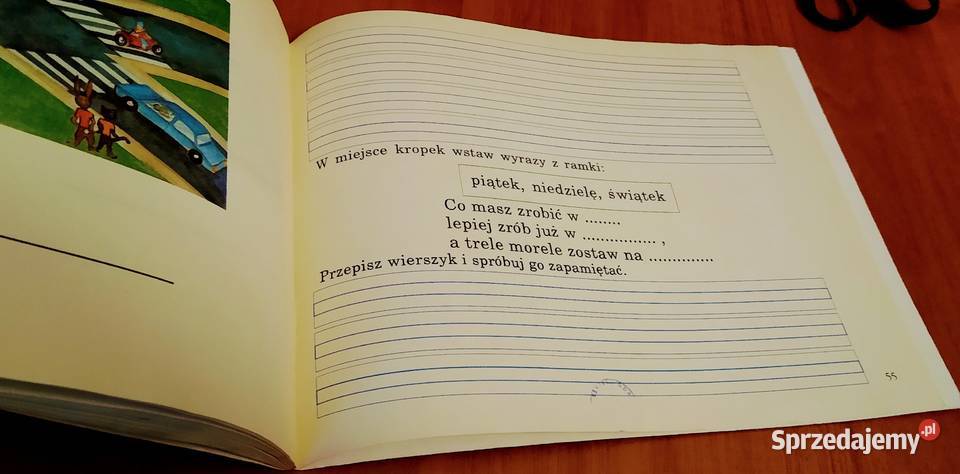 W miejsce kropek wstaw wyrazy z ramki:
piątek, niedzielę, świątek
Co masz zrobić w ........
lepiej zrób już w ................ ,
a trele morele zostaw na ..............
Przepisz wierszyk i spróbuj go zapamiętać.
55
Sprzedajemy.pl